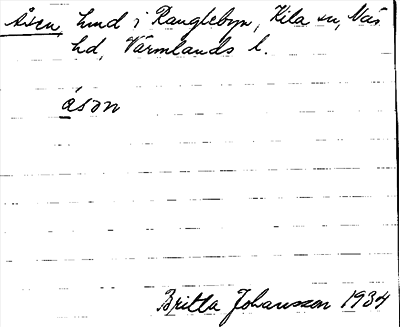 Åsen, hmd i Ranglebyn, Kila sn, Näs
hd, Värmlands l.
åsɔn
Britta Johansson 1934